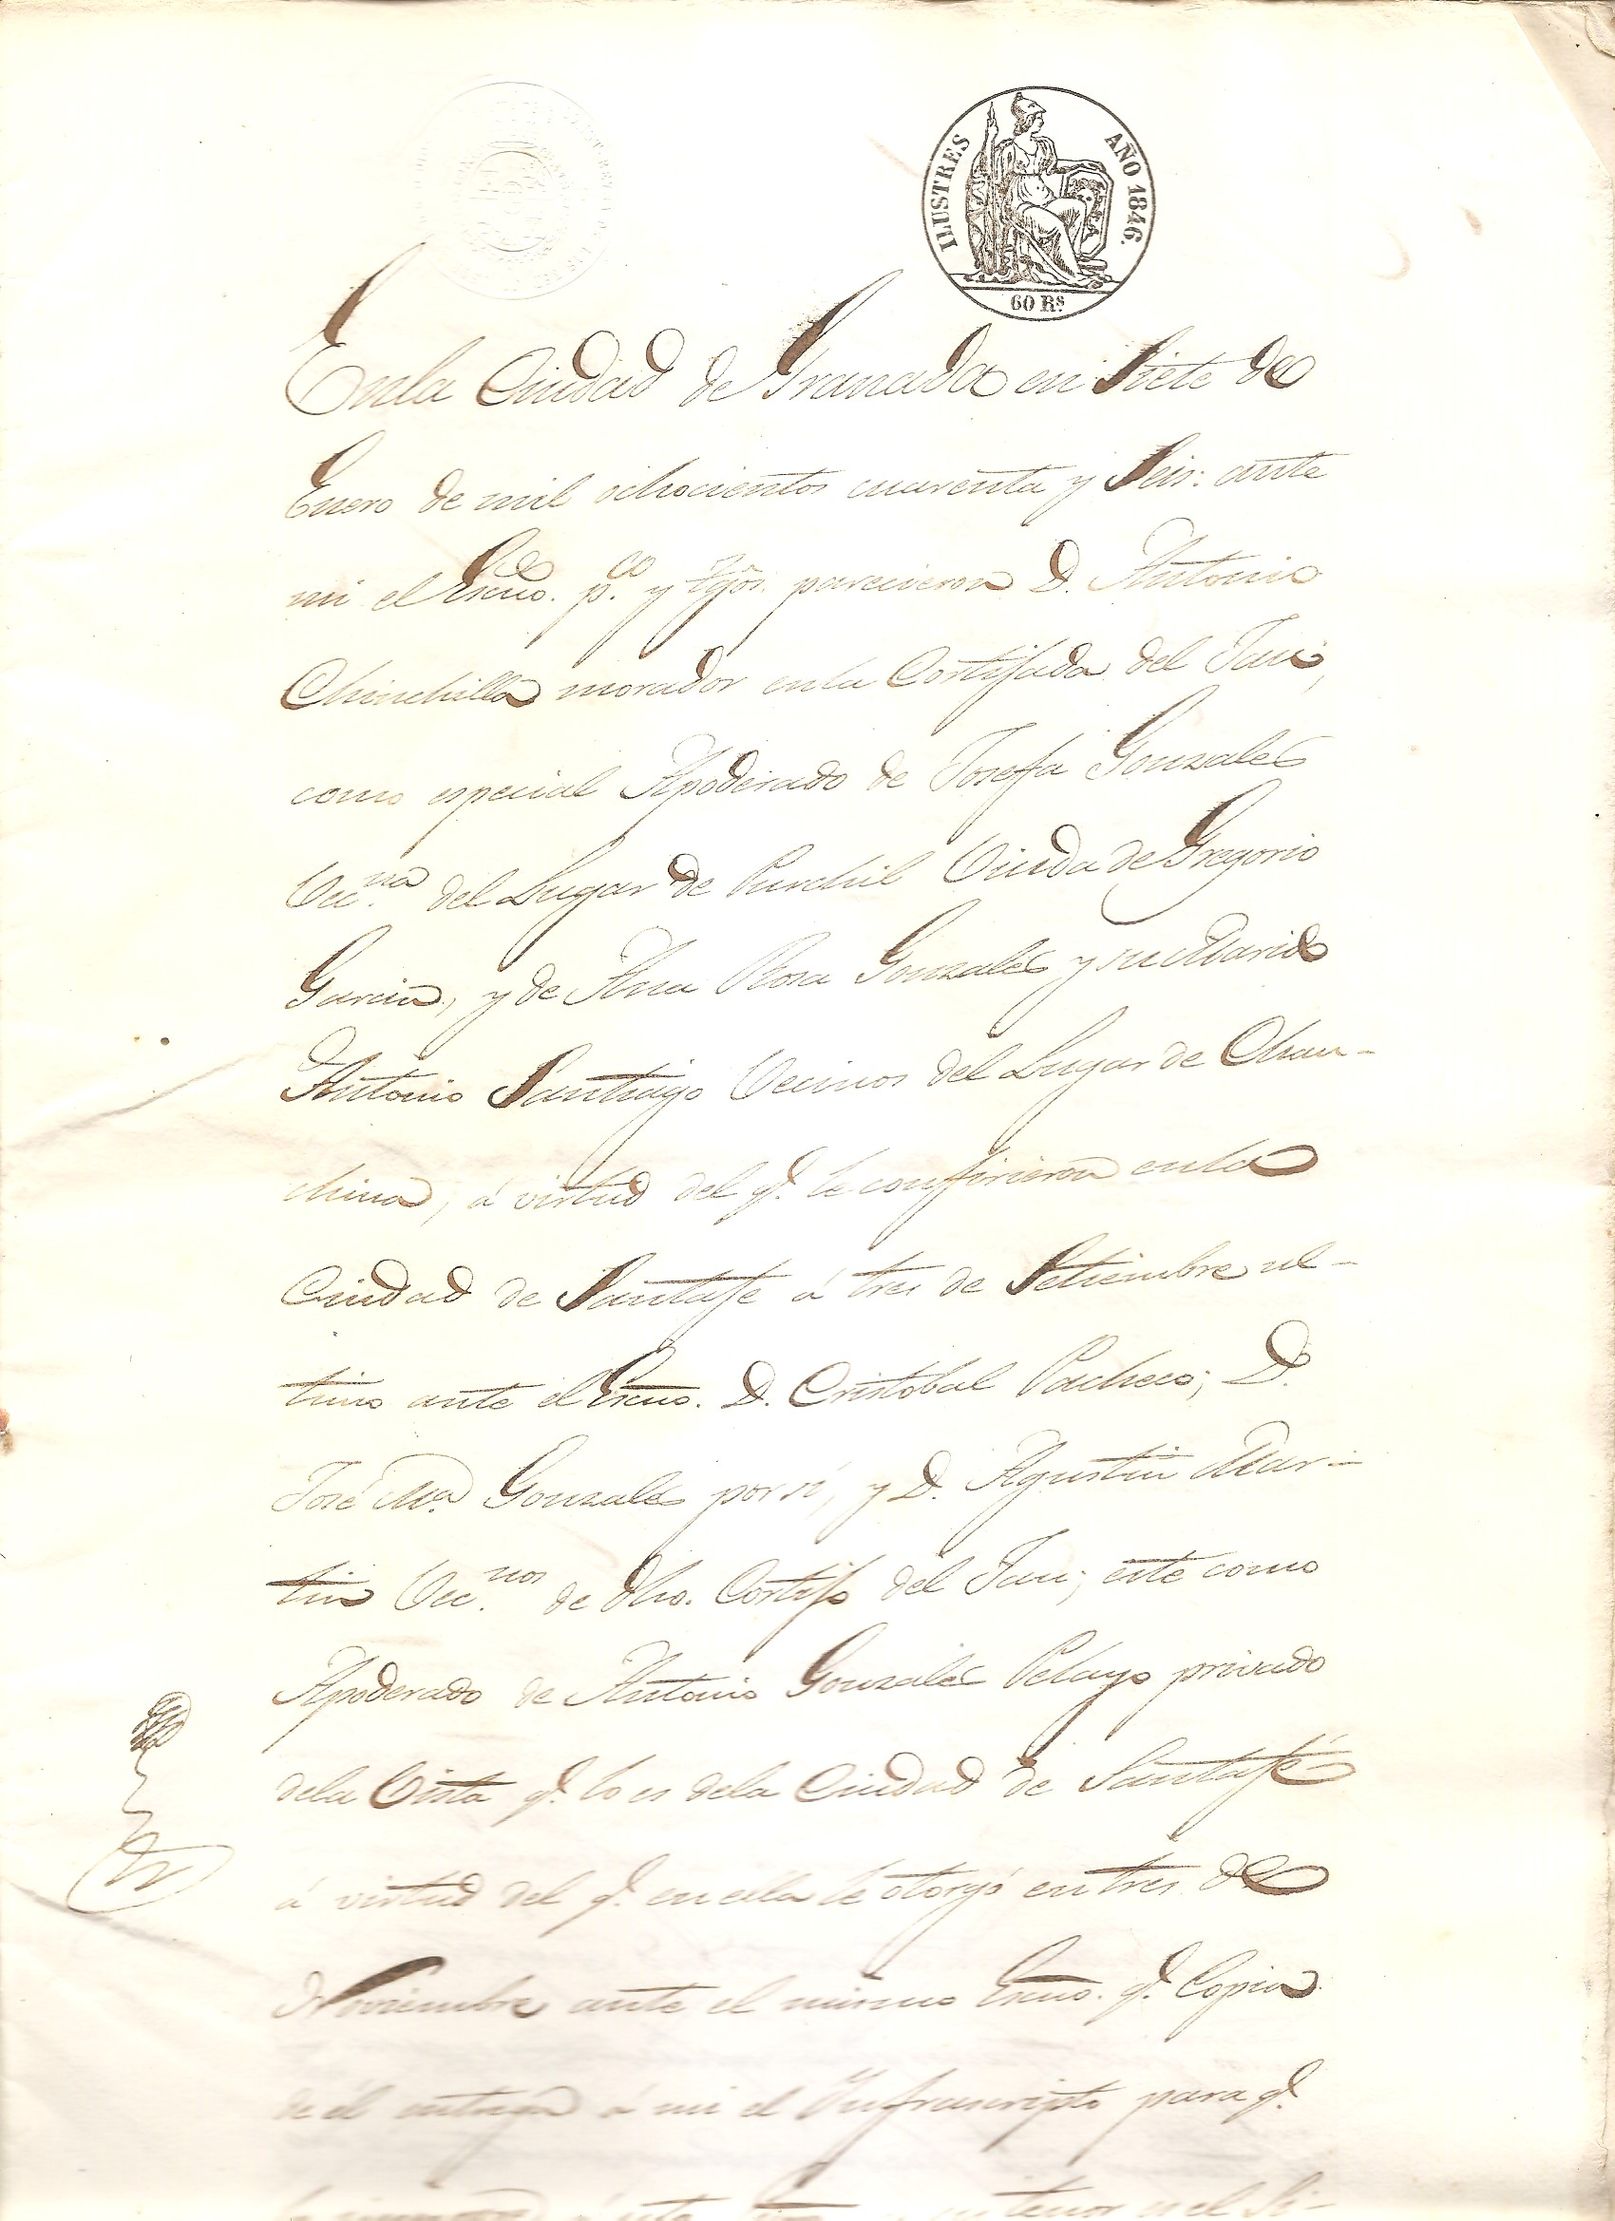 ILUSTRES
AÑO 1846.
60 Rs.
En la Ciudad de Granada en Siete de
Enero de mil ochocientos cuarenta y Seis: ante
mi el Escno. pco. y tgos. parecieron D. Antonio
Chinchilla morador en la Cortijada del Jau,
como especial Apoderado de Josefa Gonzales
Vecna. del Lugar de Purchil Viuda de Gregorio
Garcia, y de Ana Rosa Gonzales y su Marido
Antonio Santiago Vecinos del Lugar de Chau-
china, á virtud del q. le confirieron en la
Ciudad de Santafe á tres de Setiembre ul-
timo ante el Escno. D. Cristobal Pacheco; D.
José Ma. Gonzales por sí, y D. Agustin Mar-
tin Vecnos. de dho. Cortijo del Jau; este como
Apoderado de Antonio Gonzales Pelayo privado
de la Vista q. lo es de la Ciudad de Santafé
á virtud del q. en ella le otorgó en tres de
Noviembre ante el mismo Escno. q. Copia
de él entregan á mi el Infrascripto para q.